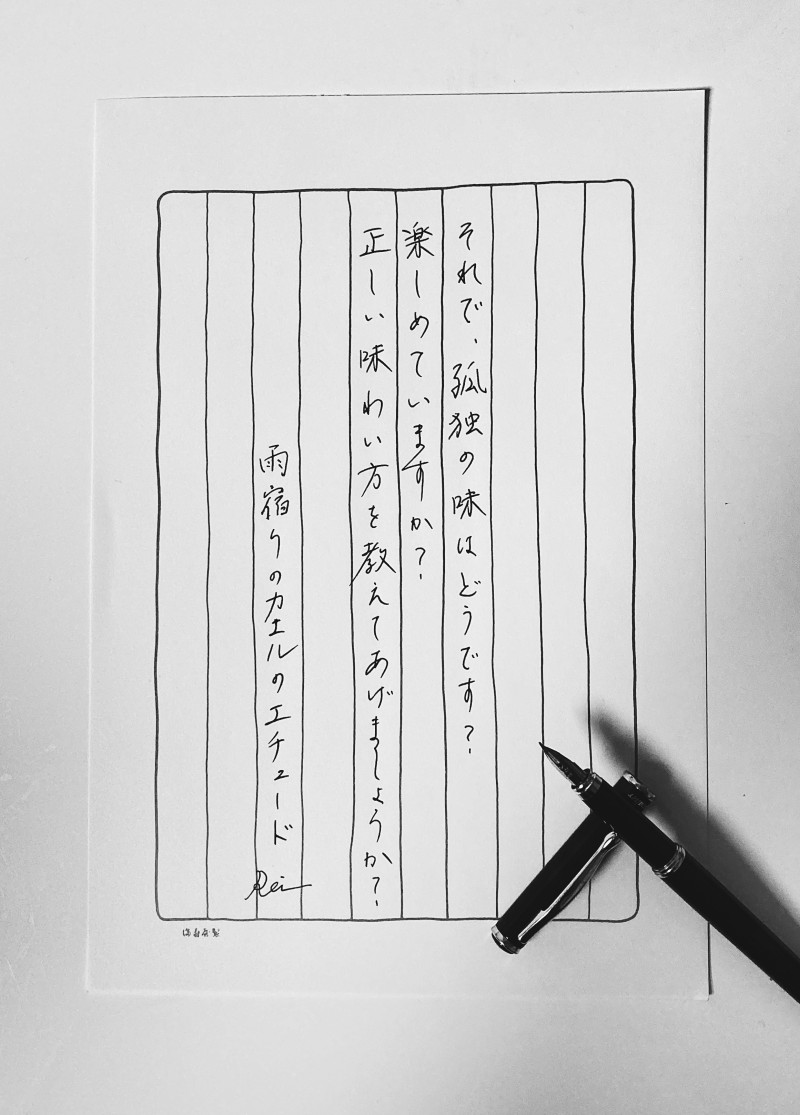 それで、孤独の味はどうです？
楽しめていますか？
正しい味わい方を教えてあげましょうか？
雨宿りのカエルのエチュード
Rei